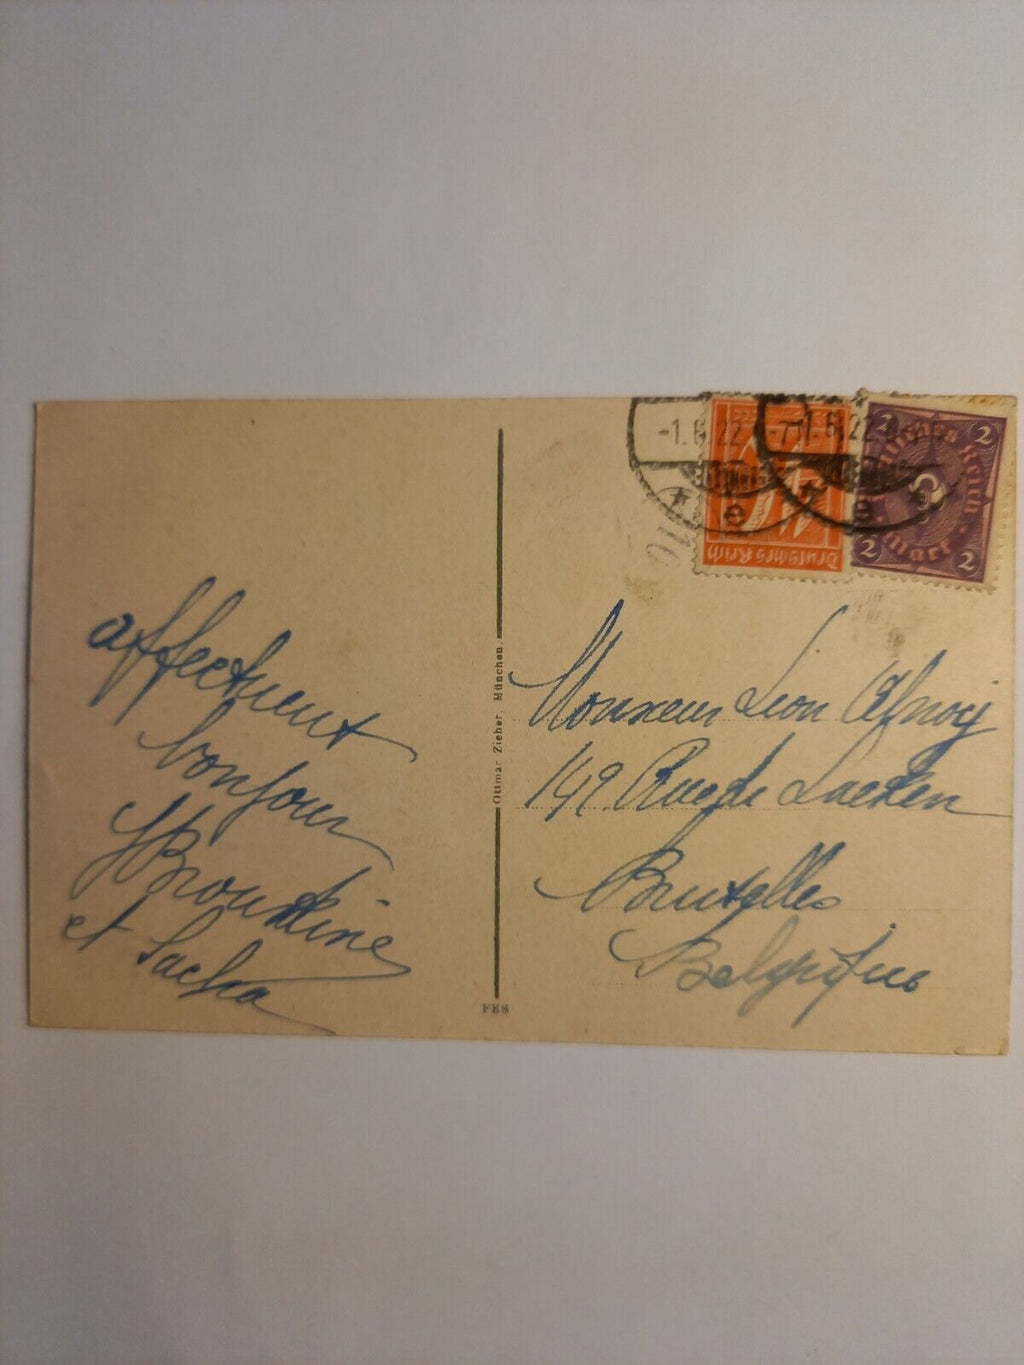 affectueux
bonjour
et Sacha
Ottmar Zieher, München.
FES
-1.6.22
-1.6.22
Deutsches Reich
2
2
Deutsches Reich
2
2 Mark 2
Monsieur Leon
149 Rue de Laeken
Bruxelles
Belgique